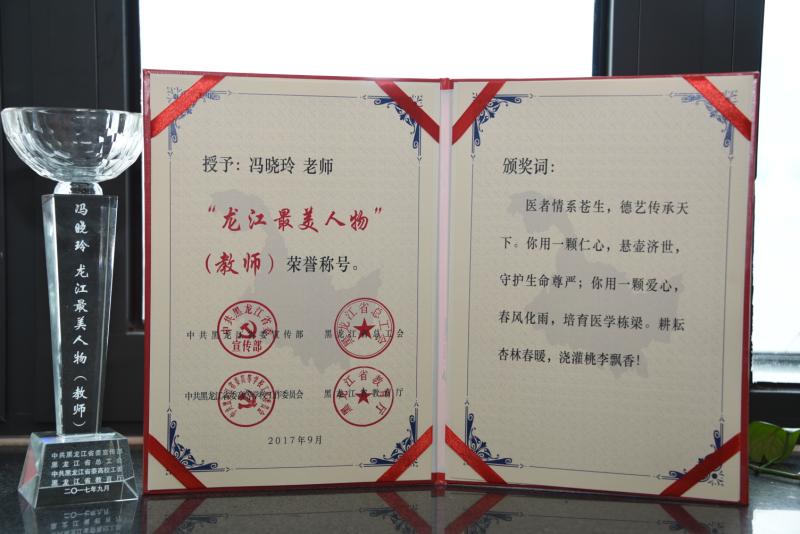 冯晓玲 龙江最美人物（教师）
中共黑龙江省委宣传部
黑龙江省总工会
中共黑龙江省委高校工委
黑龙江省教育厅
二〇一七年九月
授予：冯晓玲 老师
“龙江最美人物”
（教师）荣誉称号。
中共黑龙江省委宣传部 黑龙江省总工会
中共黑龙江省委高等学校工作委员会 黑龙江省教育厅
2017年9月
颁奖词：
医者情系苍生，德艺传承天
下。你用一颗仁心，悬壶济世，
守护生命尊严；你用一颗爱心，
春风化雨，培育医学栋梁。耕耘
杏林春暖，浇灌桃李飘香！